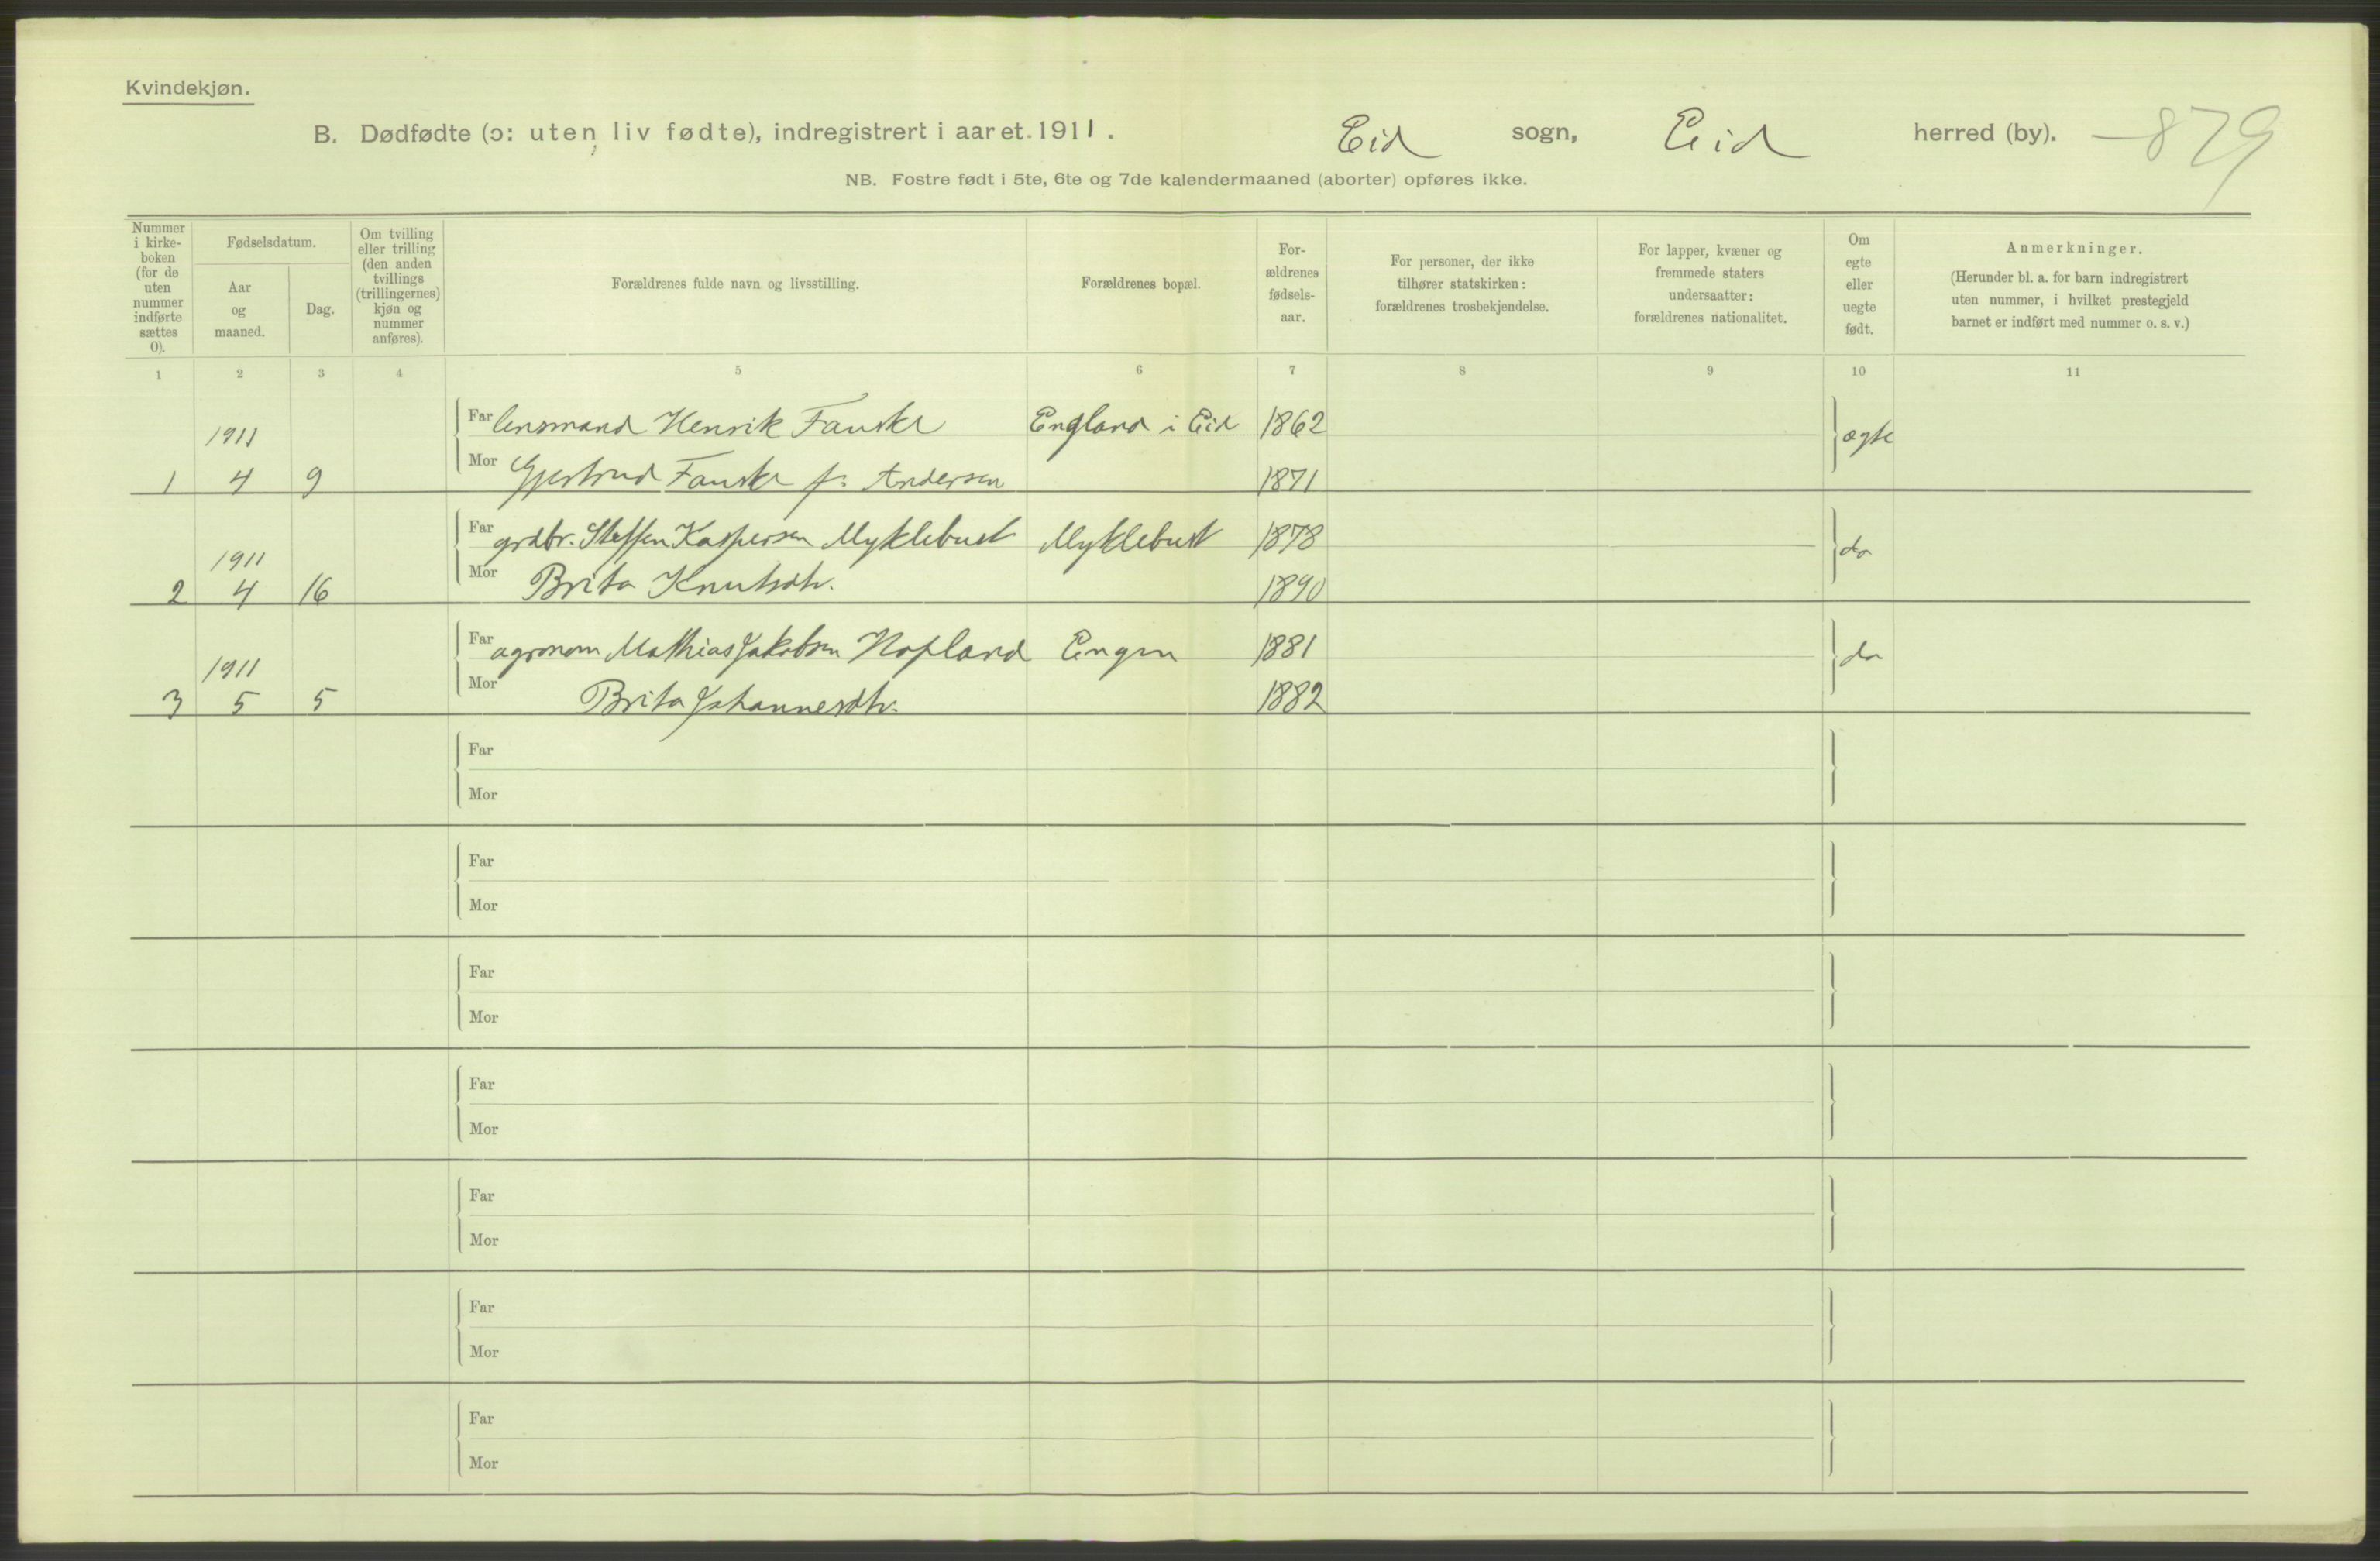 Kvindekjøn.
B. Dødfødte (ɔ: uten liv fødte), indregistrert i aaret 1911. Eid sogn, Eid herred (by). — 879
NB. Fostre født i 5te, 6te og 7de kalendermaaned (aborter) opføres ikke.
Nummer
i kirke-
boken
(for de
uten
nummer
indførte
sættes
0).
Fødselsdatum.
Aar
og
maaned.
Dag.
Om tvilling
eller trilling
(den anden
tvillings
(trillingernes)
kjøn og
nummer
anføres).
Forældrenes fulde navn og livsstilling.
Forældrenes bopæl.
For-
ældrenes
fødsels-
aar.
For personer, der ikke
tilhører statskirken:
forældrenes trosbekjendelse.
For lapper, kvæner og
fremmede staters
undersaatter:
forældrenes nationalitet.
Om
egte
eller
uegte
født.
Anmerkninger.
(Herunder bl. a. for barn indregistrert
uten nummer, i hvilket prestegjeld
barnet er indført med nummer o. s. v.)
1 2 3 4 5 6 7 8 9 10 11
1911 Far lensmand Henrik Fauske England i Eid 1862 ægte
1 4 9 Mor Gjertrud Fauske f. Andersen 1871
1911 Far grdbr. Steffen Kaspersen Myklebust Myklebust 1878 do
2 4 16 Mor Brita Knutsdtr. 1890
1911 Far agronom Mathias Jakobsen Hopland Engen 1881 do
3 5 5 Mor Brita Johannesdtr. 1882
Far
Mor
Far
Mor
Far
Mor
Far
Mor
Far
Mor
Far
Mor
Far
Mor